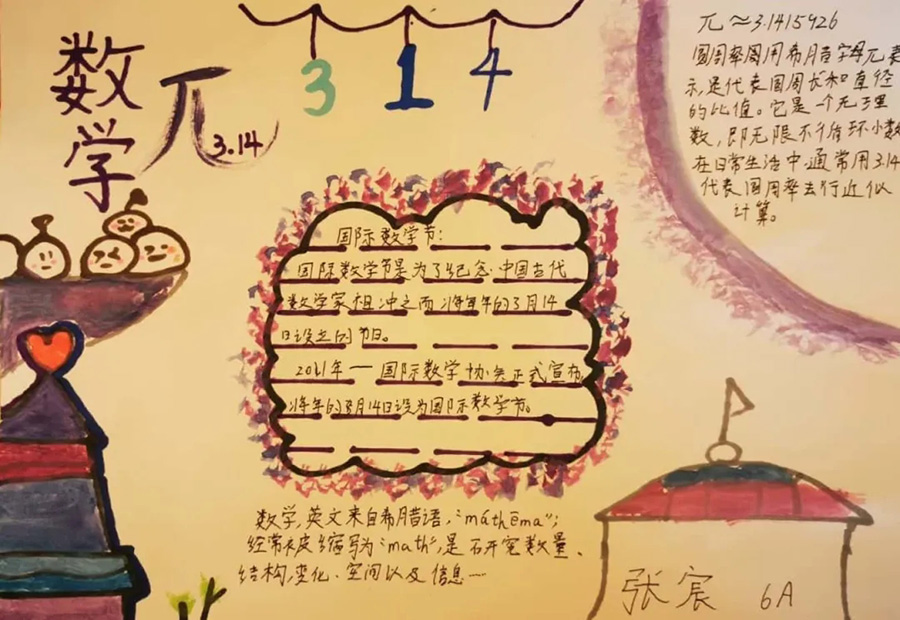 数学
π
3.14
3 1 4
π≈3.1415926
圆周率圆用希腊字母π表
示,是代表圆周长和直径
的比值。它是一个无理
数,即无限不循环小数
在日常生活中通常用3.14
代表圆周率去行近似
计算。
国际数学节:
国际数学节是为了纪念中国古代
数学家祖冲之而将每年的3月14
日设立的节日。
2011年一国际数学协会正式宣布
将年的3月14日设为国际数学节。
数学,英文来自希腊语,"máthēma";
经常被缩写为"math",是研究数量、
结构,变化、空间以及信息…
张宸 6A